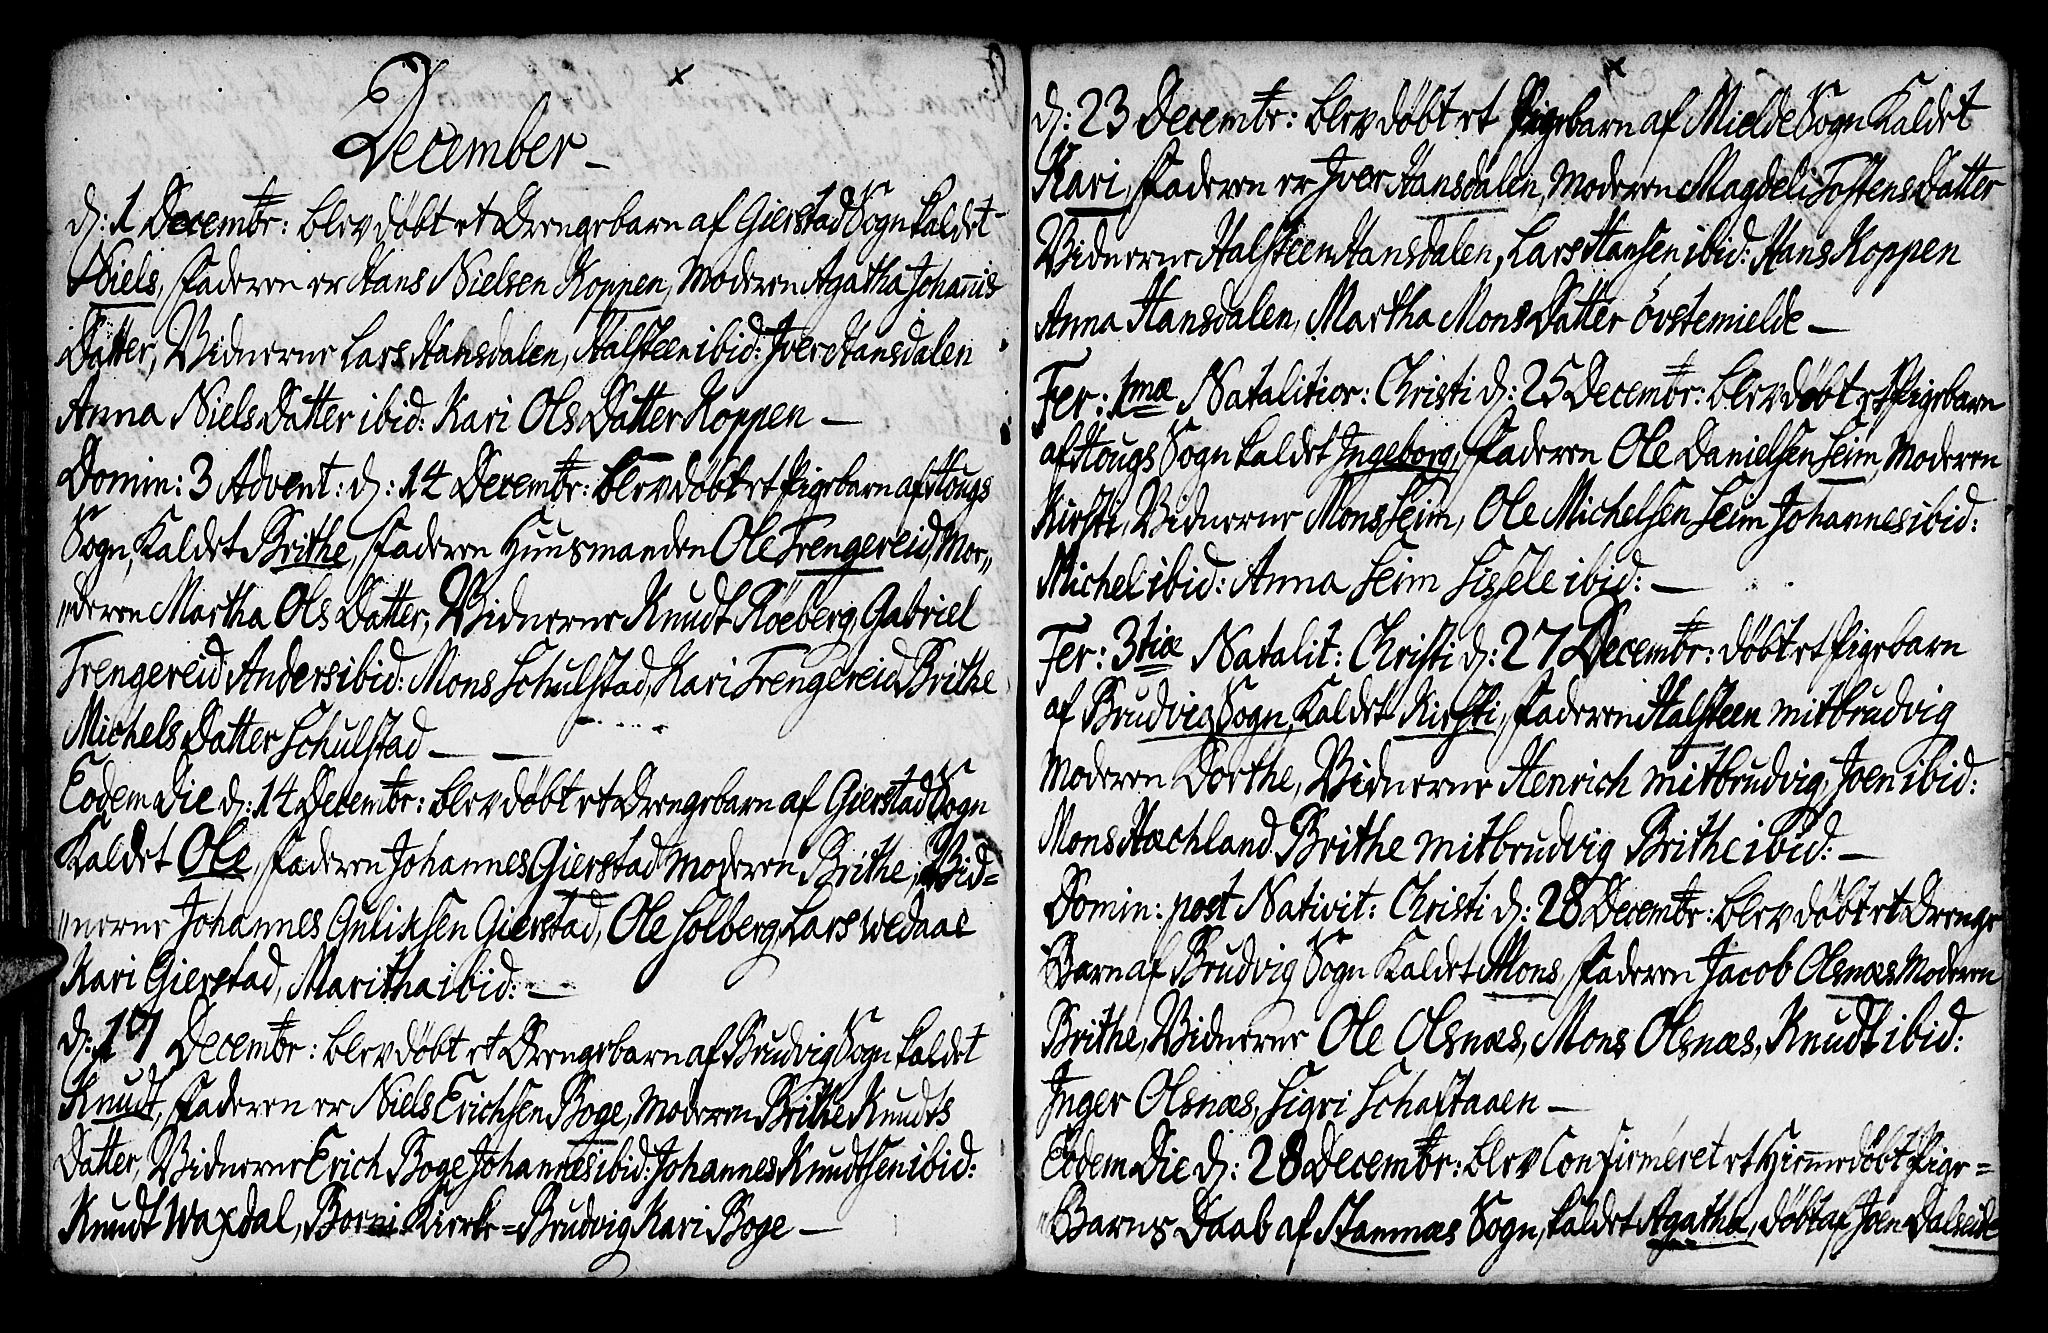 December
d: 1 Decembr: blev døbt et Drengebarn af Gierstad Sogn kaldet
Niels, Faderen er Hans Nielsen Koppen, Moderen Agatha Johannis
Datter, Vidnerne Lars Hansdalen, Halsteen ibid: Iver Hansdalen
Anna Niels Datter ibid: Kari Ols Datter Koppen —
Domin: 3 Advent: d: 14 Decembr: blev døbt et Pigebarn af Hougs
Sogn, Kaldet Brithe, Faderen Huusmanden Ole Trengereid, Mo-
deren Martha Ols Datter, Vidnerne Knudt Röeberg, Gabriel
Trengereid Anders ibid: Mons Schulstad, Kari Trengereid Brithe
Michels Datter Schulstad —
Eodem Die d: 14 Decembr: blev døbt et Drengebarn af Gierstad Sogn
Kaldet Ole, Faderen Johannes Gierstad Moderen Brithe, Vid=
nerne Johannes Guliksen Gierstad, Ole Solberg, Lars wedaae
Kari Gierstad, Maritha ibid: —
d: 17 Decembr: blev døbt et Drengebarn af Brudvig Sogn kaldet
Knudt, Faderen er Niels Erichsen Boge, Moderen Brithe Knudts
Datter, Vidnerne Erich Boge Johannes ibid: Johannes Knudtsen ibid:
Knudt Waxdal, Borni Kirke=Brudvig Kari Boge —
d: 23 Decembr: blev døbt et Pigebarn af Mielde Sogn Kaldet
Kari, Faderen er Iver Hansdalen, Moderen Magdeli Tostens Datter
Vidnerne Halsteen Hansdalen, Lars Hansen ibid: Hans Koppen
Anna Hansdalen, Martha Mons Datter övstemielde —
Fer: 1mæ Natalitior: Christi d: 25 Decembr: blev døbt et Pigebarn
af Hougs Sogn kaldet Ingeborg, Faderen Ole Danielsen Seim, Moderen
Kirsti, Vidnerne Mons Seim, Ole Michelsen Seim Johannes ibid:
Michel ibid: Anna Seim Sissele ibid: —
Fer: 3tiæ Natalit: Christi d: 27 Decembr: døbt et Pigebarn
af Brudvig Sogn, Kaldet Kirsti, Faderen Halsteen mitbrudvig
Moderen Dorthe, Vidnerne Henrich mitbrudvig, Joen ibid:
Mons Hæchland Brithe mitbrudvig Brithe ibid: —
Domin: post Nativit: Christi d: 28 Decembr: blev døbt et Drenge
Barn af Brudvig Sogn Kaldet Mons, Faderen Jacob Olsnæs Moderen
Brithe, Vidnerne Ole Olsnæs, Mons Olsnæs, Knudt ibid:
Inger Olsnæs, Sigri Schaftaaen —
Eodem Die d: 28 Decembr: blev Confirmeret et Hiemmedøbt Pige=
Barns Daab af Hammæs Sogn, kaldet Agatha, døbt af Joen Dalseide